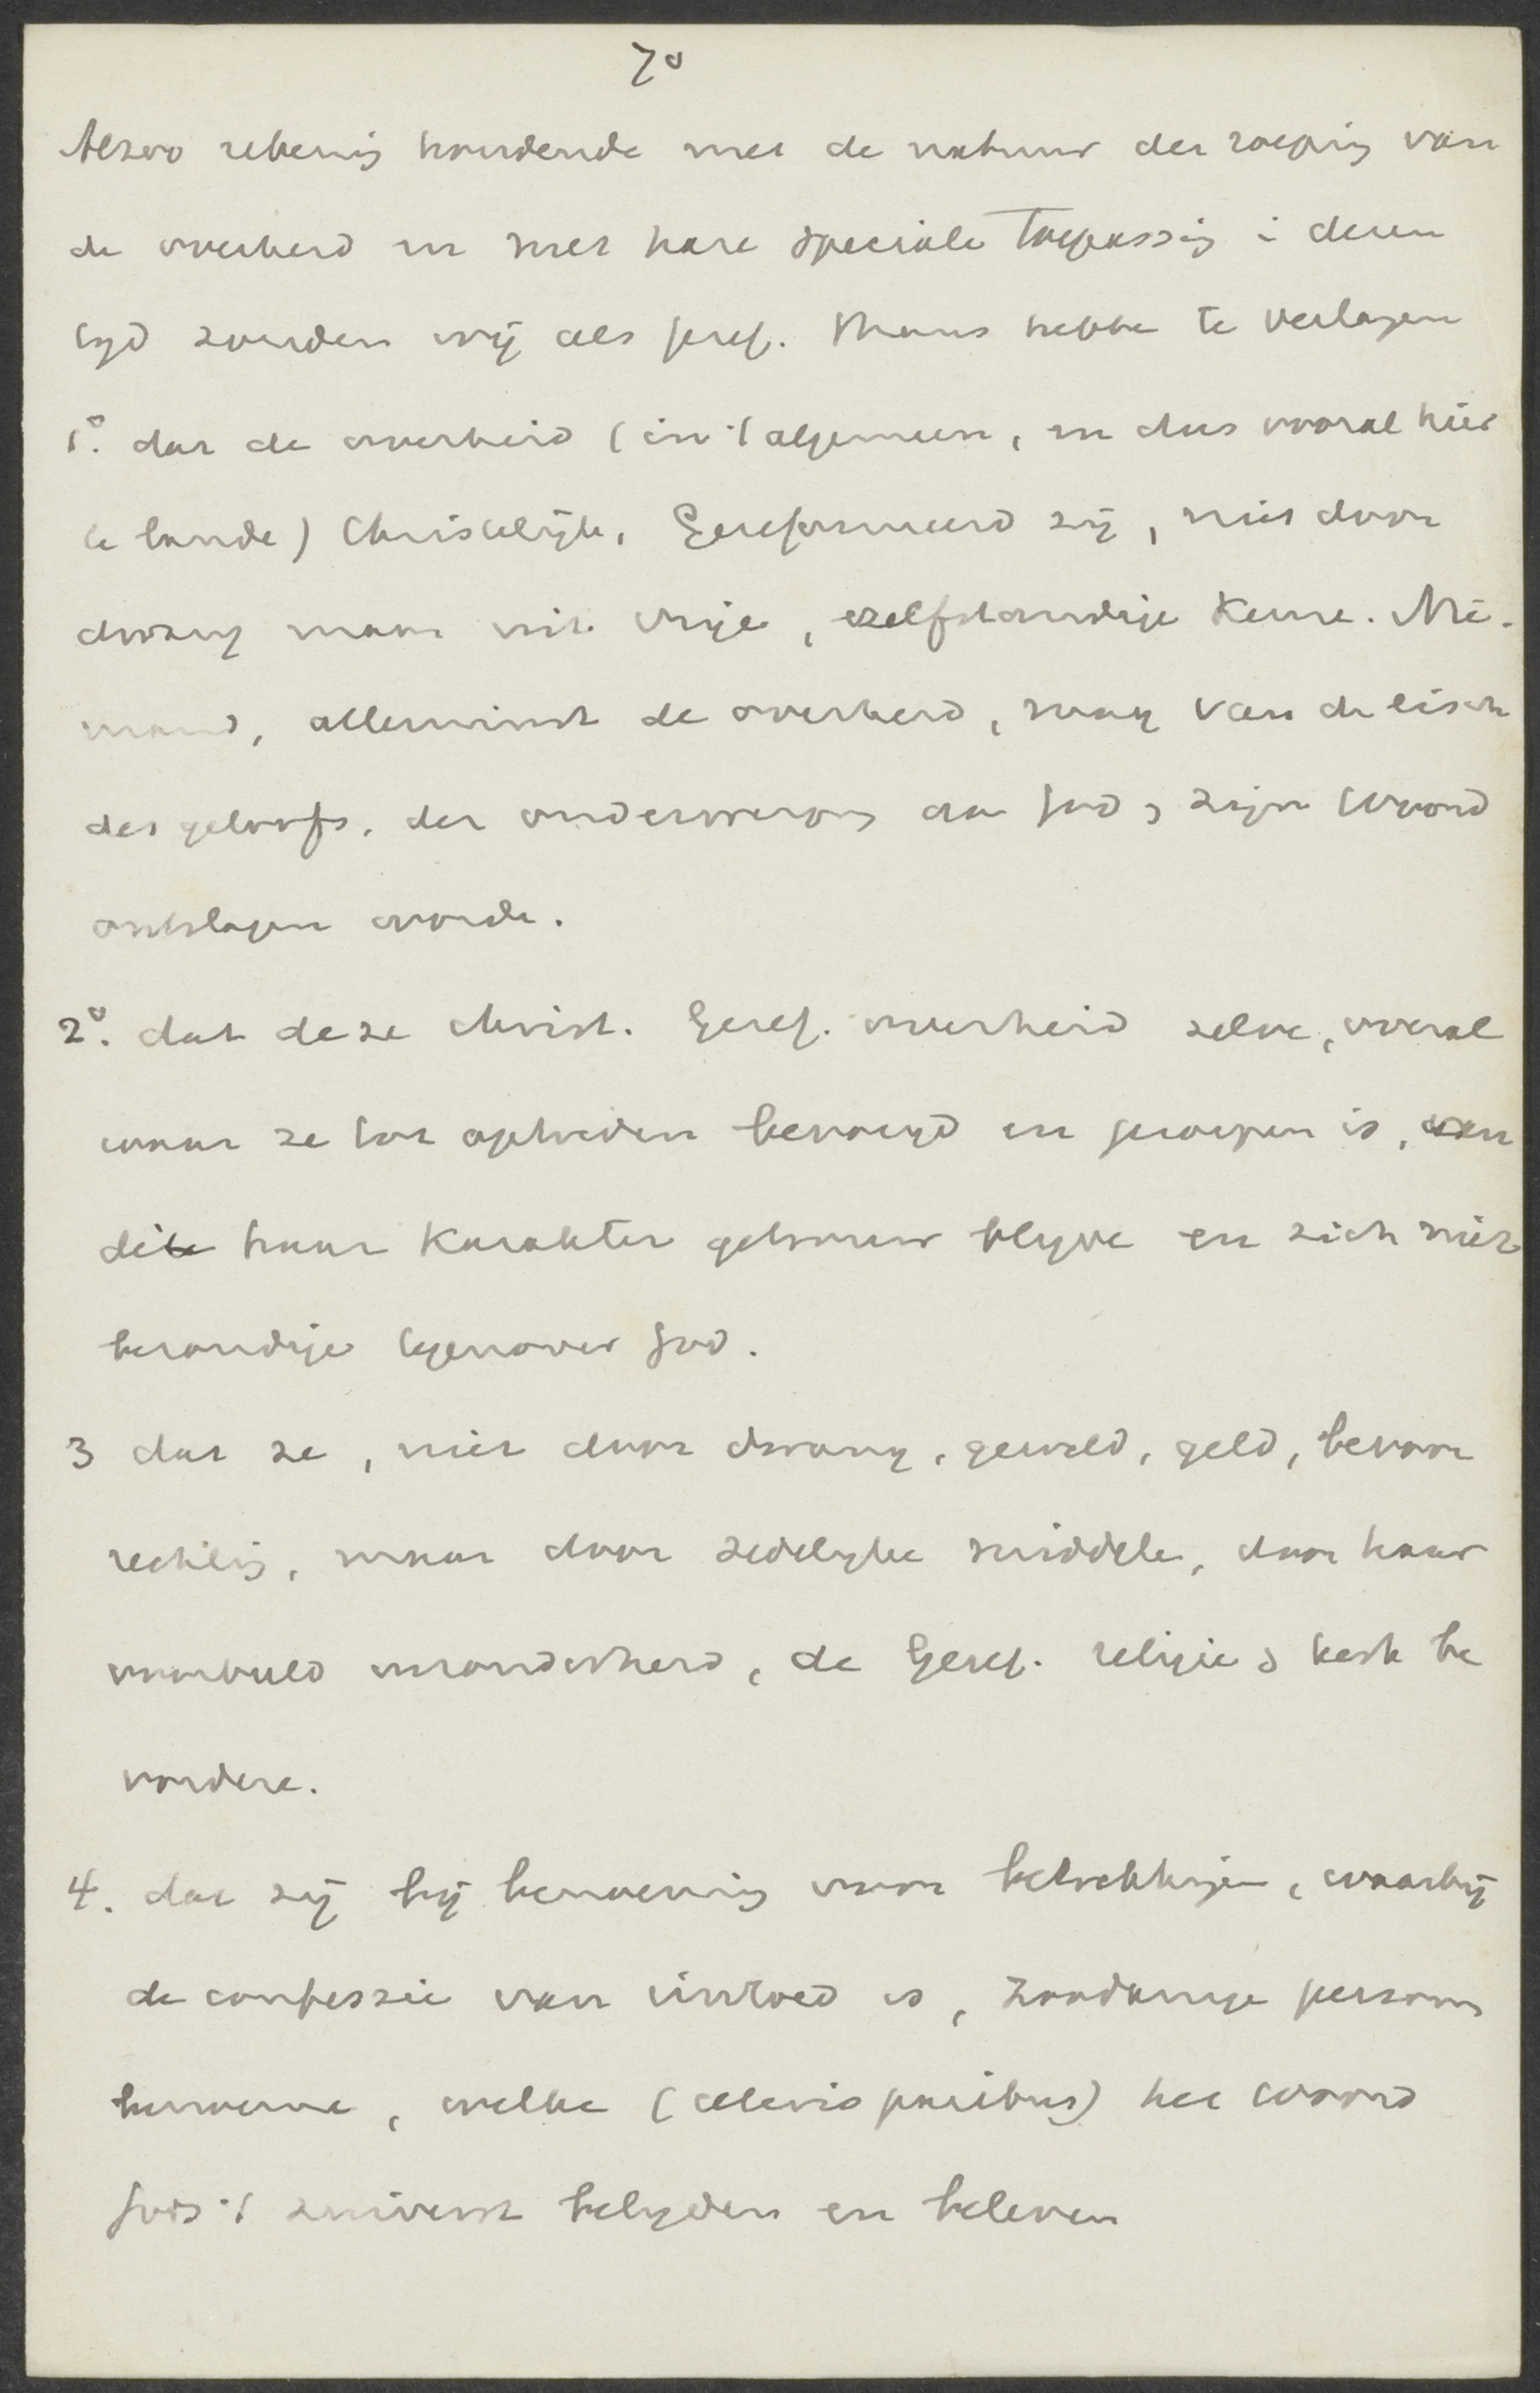 7°
Alzoo rekening houdende met de natuur der roeping van
de overheid en met hare speciale toepassing i dezen
tijd zouden wij als geref. thans hebbe te verlagen
1°. dat de overheid (in 't algemeen, en dus vooral hier
te lande) Christelijk, Gereformeerd zij, niet door
dwang maar uit vrije, zelfstandige keuze. Nie-
mand, allerminst de overheid, mag van de eisch
des geloofs, der onderwerping aan God & zijn Woord
ontslagen worde.
2°. dat deze christ. Geref. overheid zelve, overal
waar ze tot optreden bevoegd en geroepen is, aan
dit haar karakter getrouw blijve en zich niet
bezondige tegenover God.
3 dat ze, niet door dwang, geweld, geld, bevoor
rechting, maar door zedelijke middele, door haar
voorbeeld inzonderheid, de Geref. religie & kerk be
vordere.
4. dat zij bij benoeming voor betrekkingen, waarbij
de confessie van invloed is, zoodanige persoons
benoeme, welke (ceteris paribus) het woord
Gods 't zuiverst belijden en beleven